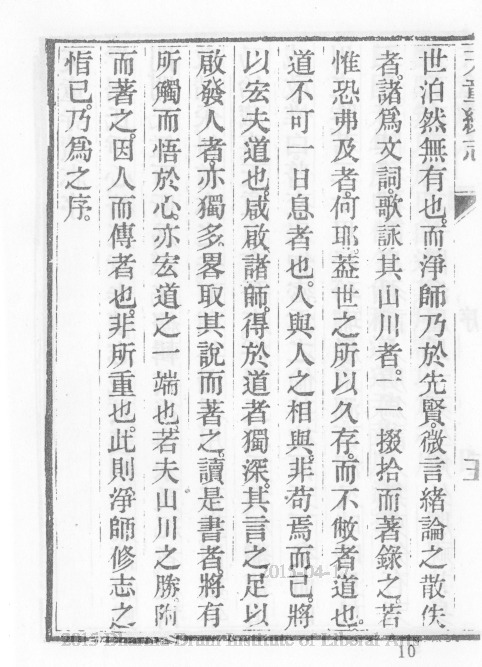 世泊然無有也。而淨師乃於先賢。微言緒論之散佚
者。諸爲文詞。歌詠其山川者。一一掇拾而著錄之。若
惟恐弗及者。何耶。葢世之所以久存。而不敝者道也。
道不可一日息者也。人與人之相與。非苟焉而已。將
以宏夫道也。咸啟諸師。得於道者獨深。其言之足以
啟發人者。亦獨多。畧取其說而著之。讀是書者。將有
所觸而悟於心。亦宏道之一端也。若夫山川之勝。附
而著之。因人而傳者也。非所重也。此則淨師修志之
恉已。乃爲之序。
2015-04-17
10